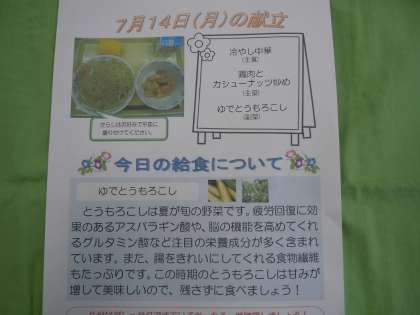 7月14日(月)の献立
冷やし中華
(主食)
鶏肉と
カシューナッツ炒め
(主菜)
ゆでとうもろこし
(副菜)
からしはお好みで平皿に
盛り付けてください。
今日の給食について
ゆでとうもろこし
とうもろこしは夏が旬の野菜です。疲労回復に効
果のあるアスパラギン酸や、脳の機能を高めてくれ
るグルタミン酸など注目の栄養成分が多く含まれ
ています。また、腸をきれいにしてくれる食物繊維
もたっぷりです。この時期のとうもろこしは甘みが
増して美味しいので、残さずに食べましょう！